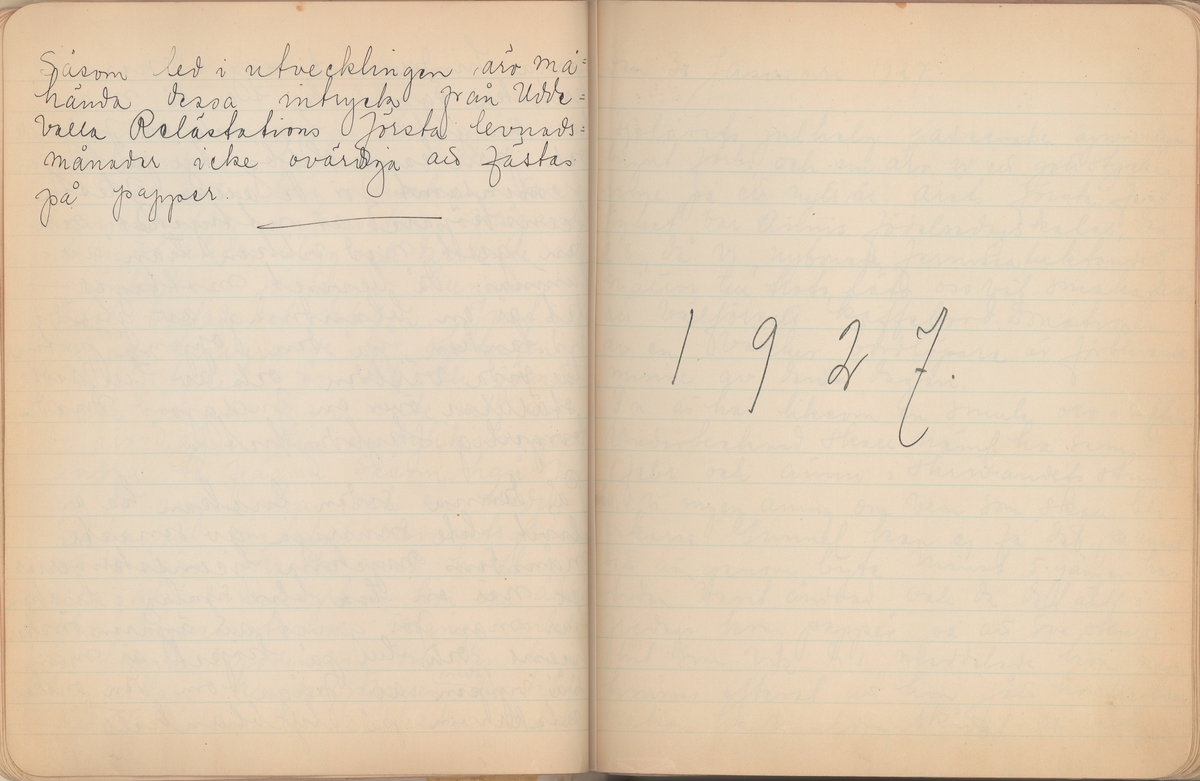 Såsom led i utvecklingen äro må=
hända dessa intryck från Udde=
valla Relästations första levnads=
månader icke ovärdja att fästas
på papper.
1927.